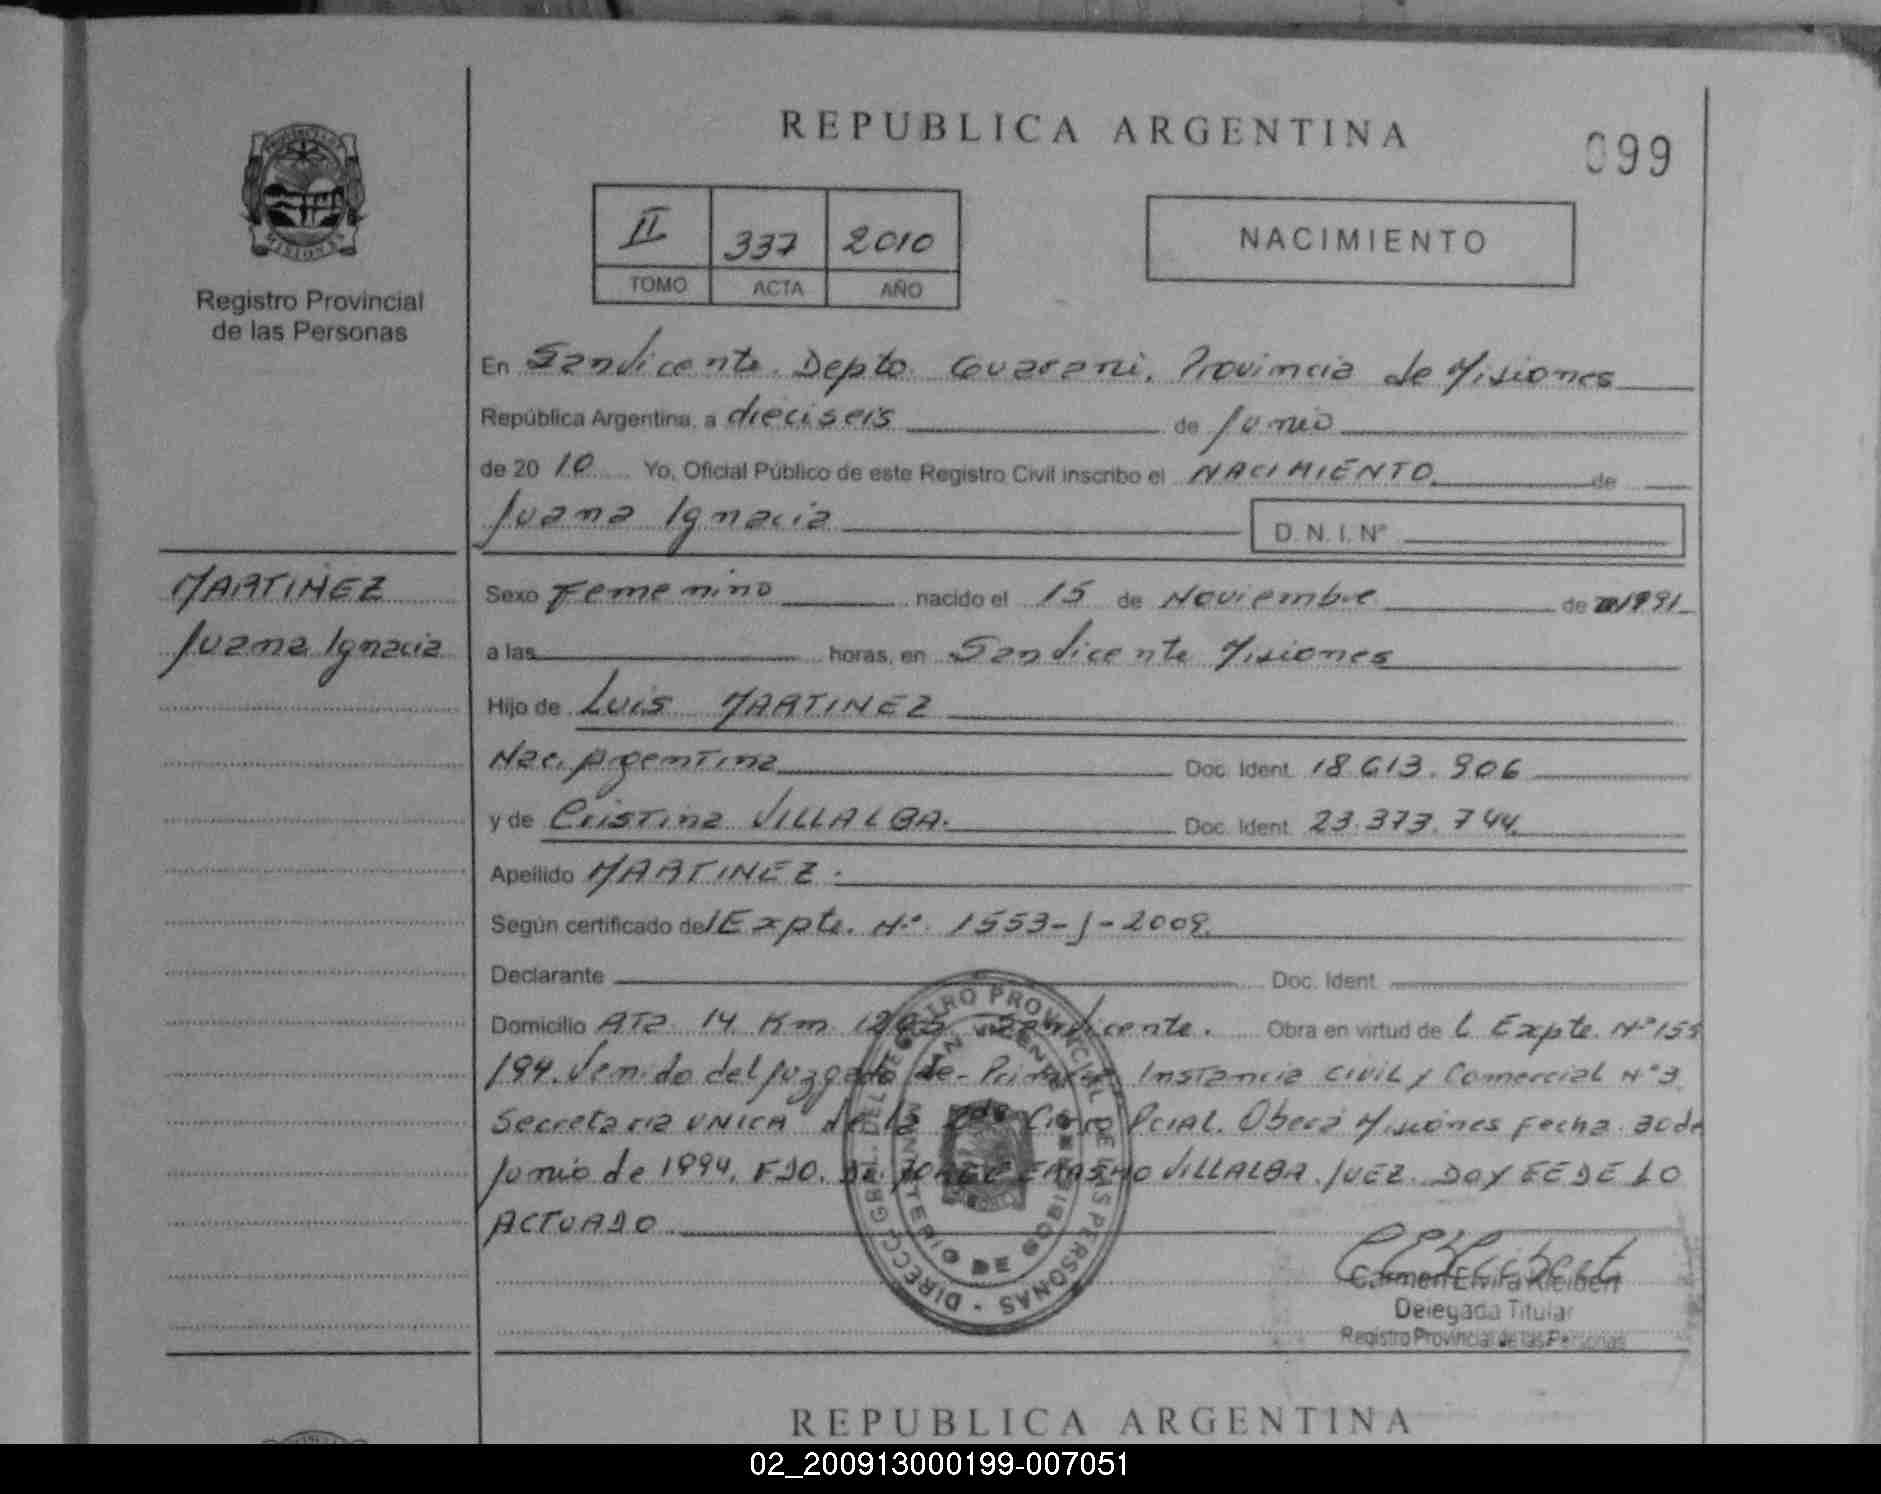 REPUBLICA ARGENTINA
099
II 337 2010
TOMO ACTA AÑO
NACIMIENTO
PROVINCIA
MISIONES
Registro Provincial
de las Personas
En San Vicente. Depto. Guarani. Provincia de Misiones
República Argentina, a dieciseis de Junio
de 2010 Yo, Oficial Público de este Registro Civil inscribo el NACIMIENTO de
Juana Ignacia D. N. I. Nº
MARTINEZ
Juana Ignacia
Sexo Femenino nacido el 15 de Noviembre de 1991
a las horas, en San Vicente Misiones
Hijo de Luis MARTINEZ
Nac. Argentina Doc. Ident. 18.613.906
y de Cristina VILLALBA. Doc. Ident. 23.373.744
Apellido MARTINEZ.
Según certificado del Expte. Nº. 1553-J-2009.
Declarante Doc. Ident.
Domicilio RTA 14 Km San Vicente. Obra en virtud de L Expte. Nº 155
194. Venido del Juzgado de Primera Instancia CIVIL y Comercial Nº 3
Secretaria UNICA de la 2da Circ. PCIAL. Oberá Misiones Fecha 30 de
Junio de 1994. FDO. DR. JORGE ERASMO VILLALBA. JUEZ. DOY FE DE LO
ACTUADO
DIRECC. GRAL. DEL REGISTRO PROVINCIAL DE LAS PERSONAS
SAN VICENTE
DE
Carmen Elvira Kleibert
Delegada Titular
Registro Provincial de las Personas
REPUBLICA ARGENTINA
02_200913000199-007051